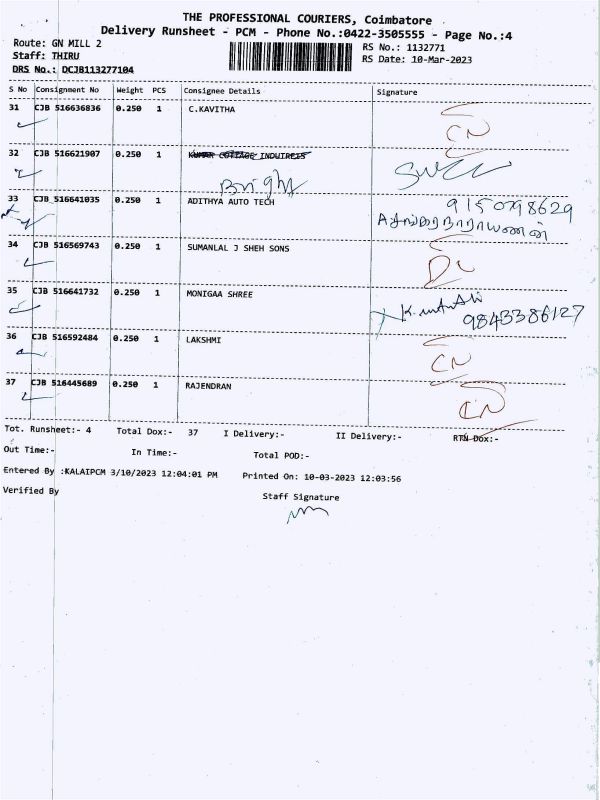 THE PROFESSIONAL COURIERS, Coimbatore
Delivery Runsheet - PCM - Phone No.:0422-3505555 - Page No.:4
Route: GN MILL 2
RS No.: 1132771
Staff: THIRU
RS Date: 10-Mar-2023
DRS No.: DCJB113277104
S No Consignment No Weight PCS Consignee Details Signature
31 CJB 516636836 0.250 1 C.KAVITHA
CN
32 CJB 516621907 0.250 1 KUMAR COTTAGE INDUTREIS
Bright
33 CJB 516641035 0.250 1 ADITHYA AUTO TECH
9150798629
34 CJB 516569743 0.250 1 SUMANLAL J SHEH SONS
DL
35 CJB 516641732 0.250 1 MONIGAA SHREE
9843386127
36 CJB 516592484 0.250 1 LAKSHMI
CN
37 CJB 516445689 0.250 1 RAJENDRAN
CN
Tot. Runsheet:- 4 Total Dox:- 37 I Delivery:- II Delivery:- RTN Dox:-
Out Time:- In Time:- Total POD:-
Entered By :KALAIPCM 3/10/2023 12:04:01 PM Printed On: 10-03-2023 12:03:56
Verified By
Staff Signature